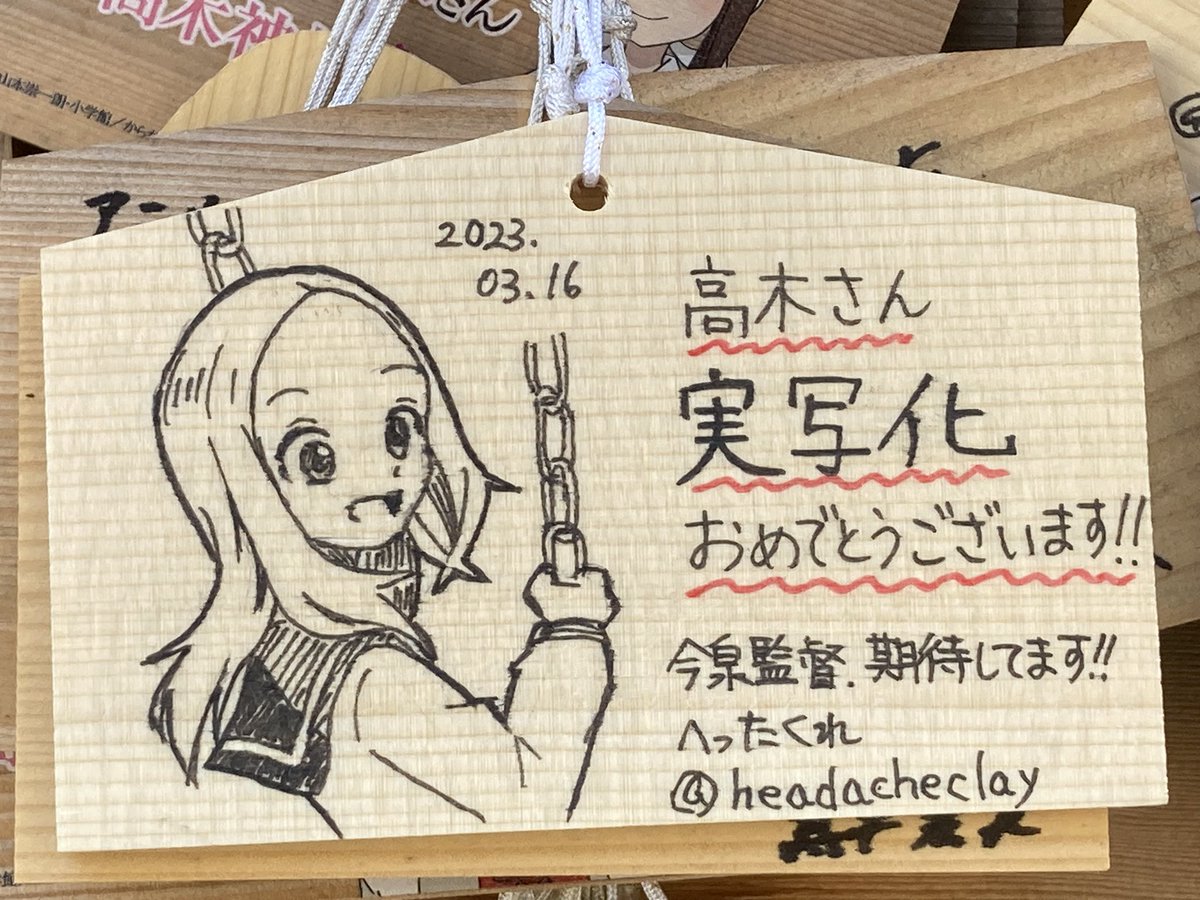 山本崇一朗・小学館／から
2023.
03.16
高木さん
実写化
おめでとうございます!!
今泉監督.期待してます!!
へったくれ
@headacheclay